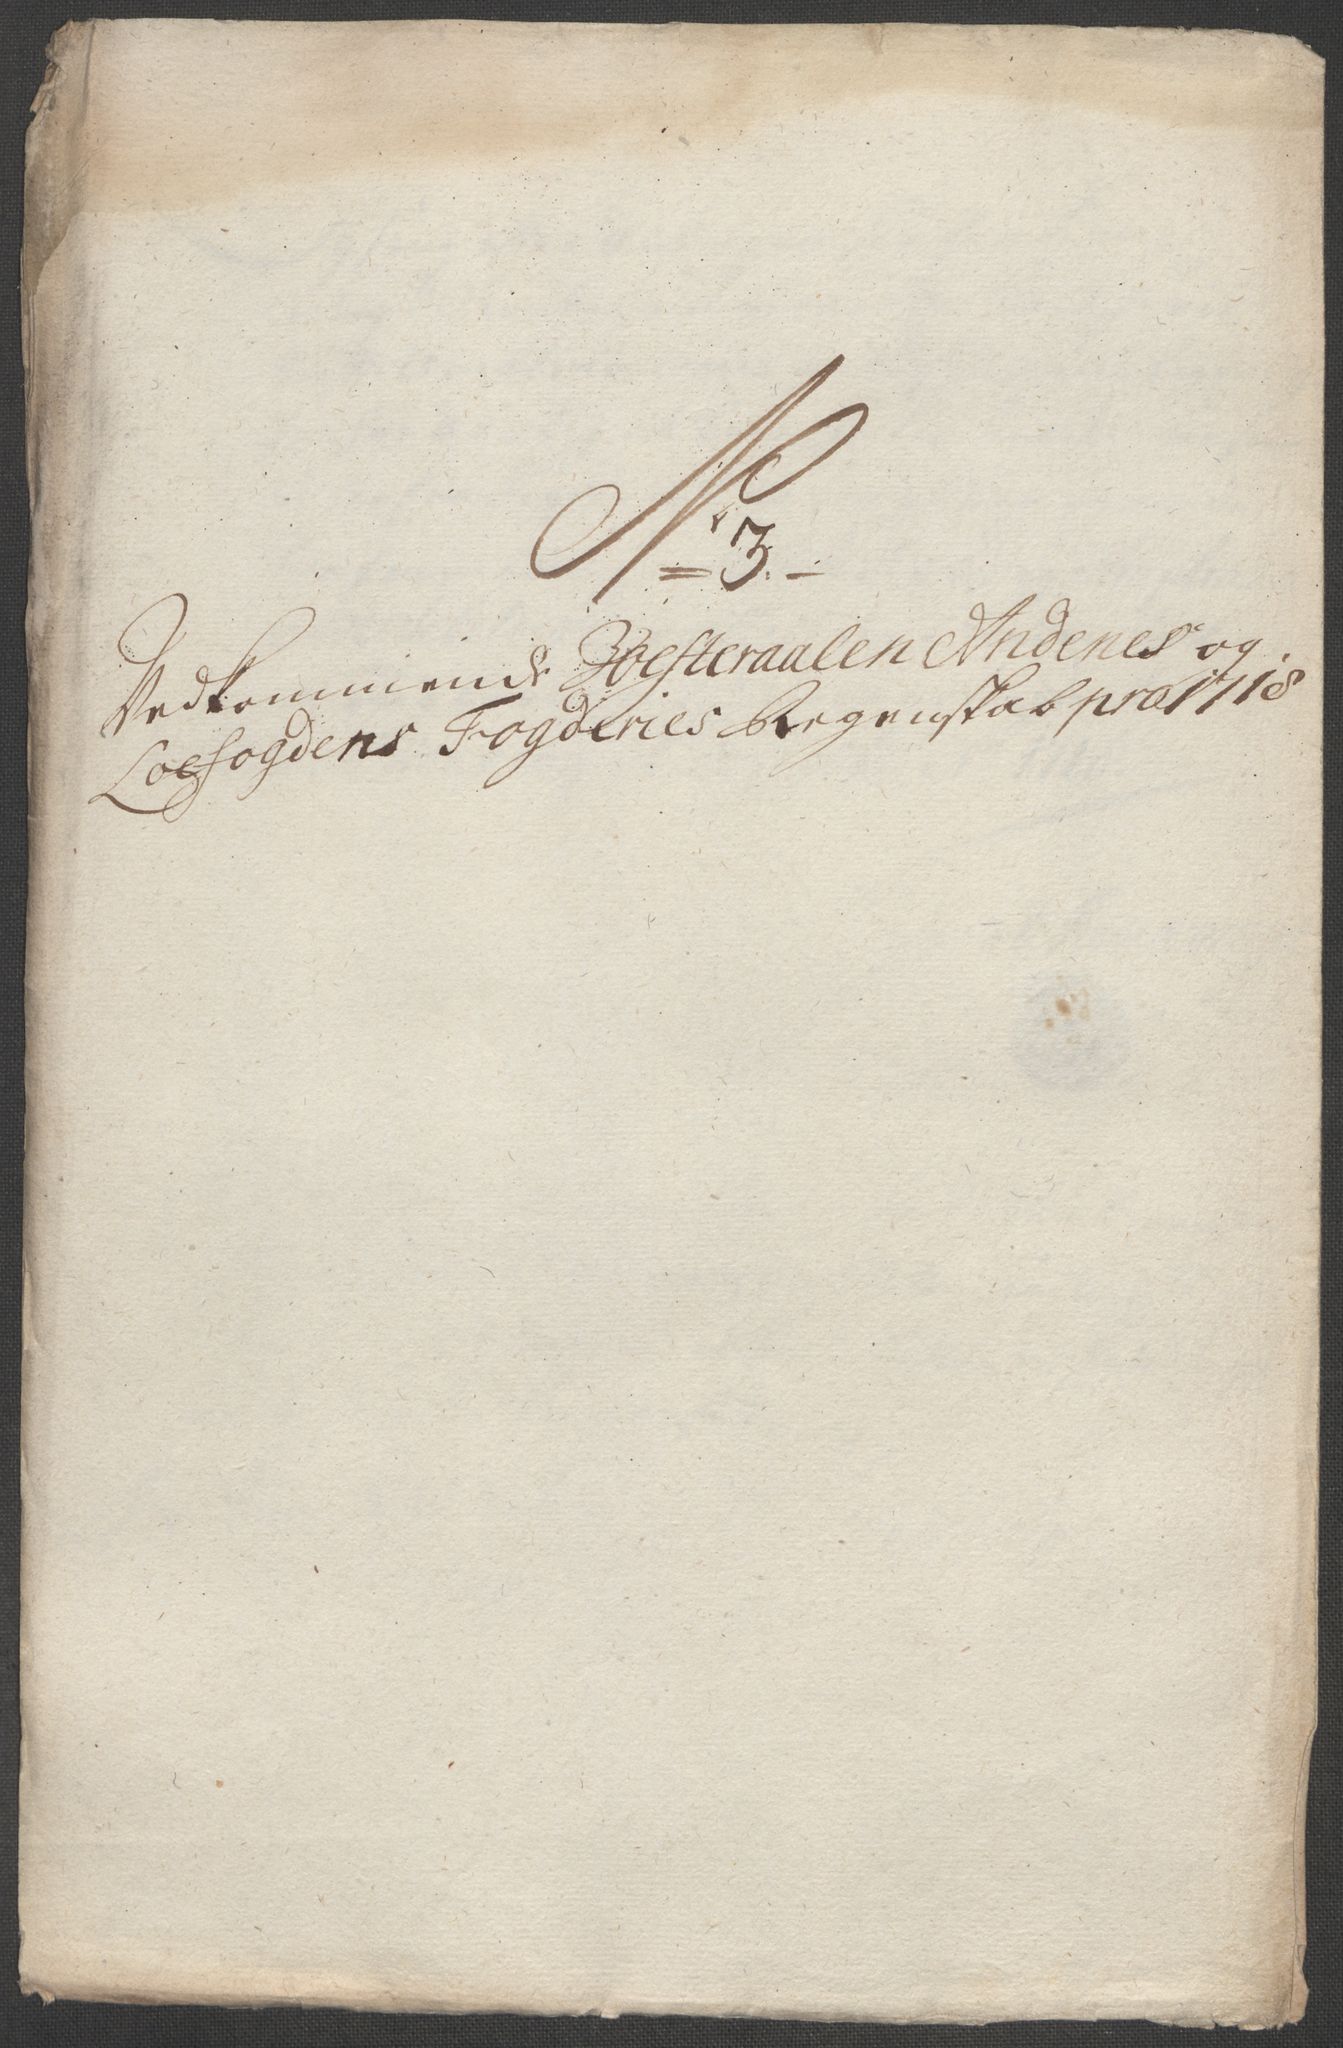 No 3.
Vedkommende Westeraalen Andenes og
Loefogdens Fogderies Regenskab pro 1718